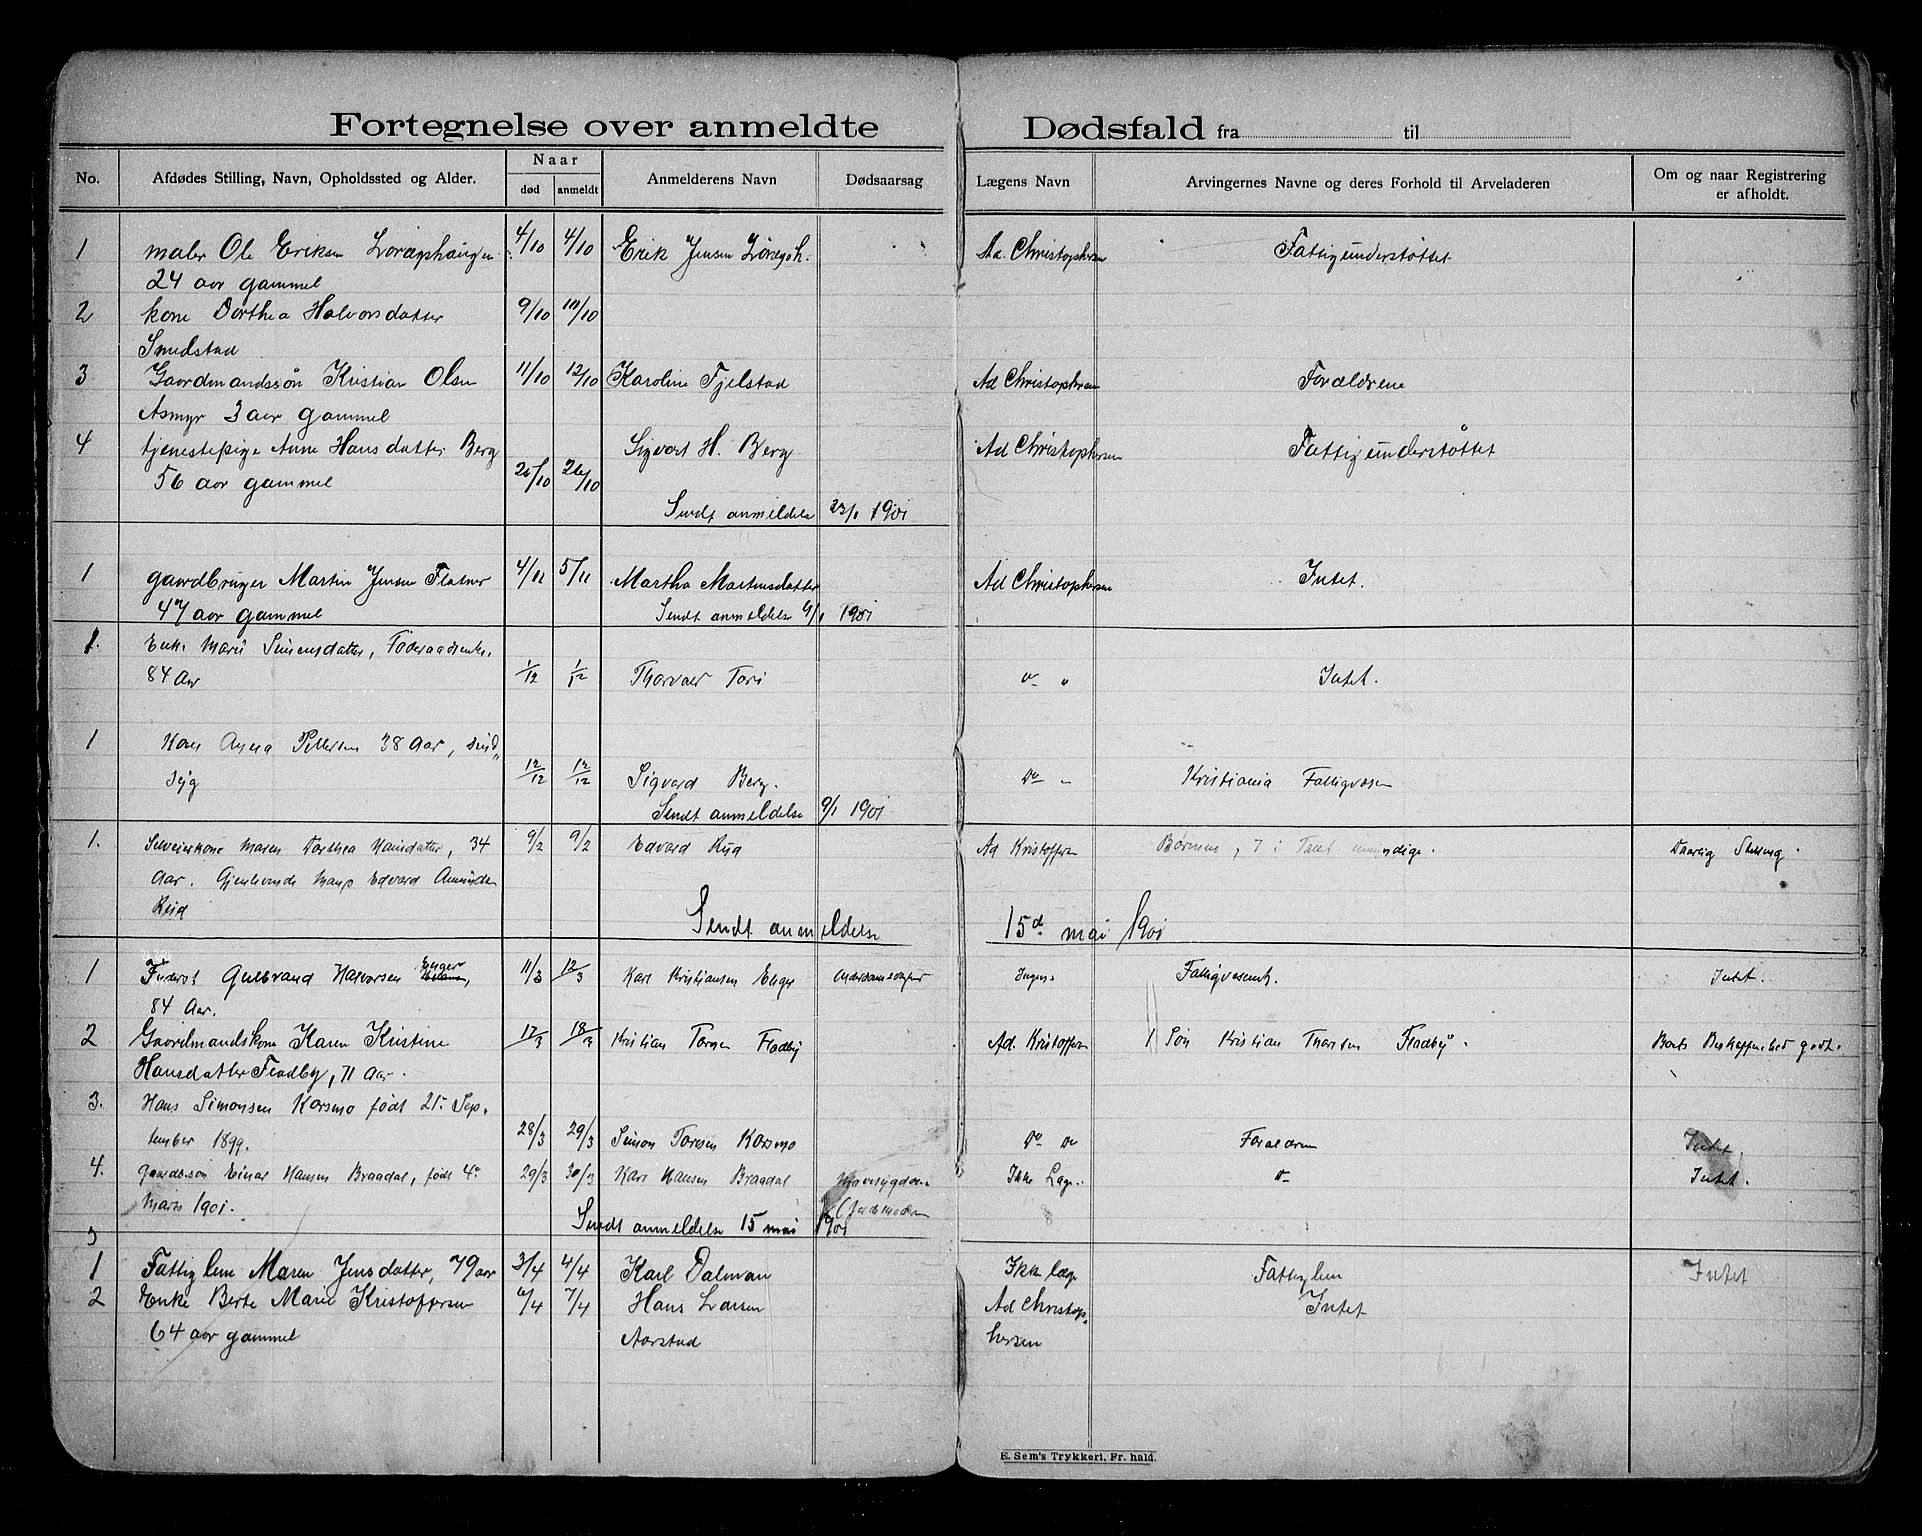 Fortegnelse over anmeldte Dødsfald fra til
No. Afdødes Stilling, Navn, Opholdssted og Alder. Naar død anmeldt Anmelderens Navn Dødsaarsag Lægens Navn Arvingernes Navne og deres Forhold til Arveladeren Om og naar Registrering er afholdt.
1 maler Ole Eriksen 4/10 4/10 Erik Jensen Ad. Christophersen Fattigunderstøttet
24 aar gammel
2 kone Dorthea Halvorsdatter 9/10 10/10
Smedstad
3 Gaardmandssøn Kristian Olsen 11/10 12/10 Karoline Fjelstad Ad Christophersen Forældrene
Asmyr 3 aar gammel
4 tjenestepige Anne Hansdatter Berg Sigvart H. Berg Ad Christophersen Fattigunderstøttet
56 aar gammel 26/10
Sendt anmeldelse 1901
1 gaardbruger Martin Jensen Flatner 4/11 5/11 Martha Martinsdatter Ad Christophersen Intet.
47 aar gammel Sendt anmeldelse 9/1 1901
1. Enke Marie Simensdatter, Føderaadsenke,
84 Aar 1/12 1/12 Thorvald Do " Intet.
1 Kone Anna Pettersen 38 Aar, sind„
syg 12/12 12/12 Sigvard Berg. Do " Kristiania Fattigvæsen
Sendt anmeldelse 9/1 1901
1. Selveierkone Maren Dorthea Hansdatter, 34 9/2 9/2 Edvard Rud Ad Kristoffersen Børnene, 7 i Tallet umyndige. Daarlig Stilling.
Aar. Gjenlevende Mand Edvard Amundsen
Rud
Sendt anmeldelse 15d mai 1901
1 Gulbrand Halvorsen Enger 11/3 12/3 Karl Kristiansen Enger Alderdomssvaghed Ingen Fattigvæsenet. Intet.
84 Aar.
2 Gaardmandskone Karen Kristine 17/3 18/3 Kristian Fladby Ad. Kristoffersen 1 Søn Kristian Fladby. Boets Beskaffenhed godt.
Hansdatter Fladby, 71 Aar.
3. Hans Simonsen Korsmo født 21. Sep„
tember 1899. 28/3 29/3 Simon Toresen Korsmo Do Do Forældrene Intet.
4. Gaardb.søn Einar Hansen Braadal, født 4. 29/3 30/3 Karl Hansen Braadal Mavesygdom Ikke Læge. Do Intet.
Marts 1901. (Jordemoderen
Sendt anmeldelse 15 mai 1901
1 Fattiglem Maren Jensdatter, 79 aar 3/4 4/4 Karl Dalman Ikke læge Fattiglem Intet
2 Enke Berte Marie Kristofersen 6/4 7/4 Hans Larsen Ad Christop„ Intet
64 aar gammel Aarstad hersen
E. Sem's Trykkeri, Fr. hald.